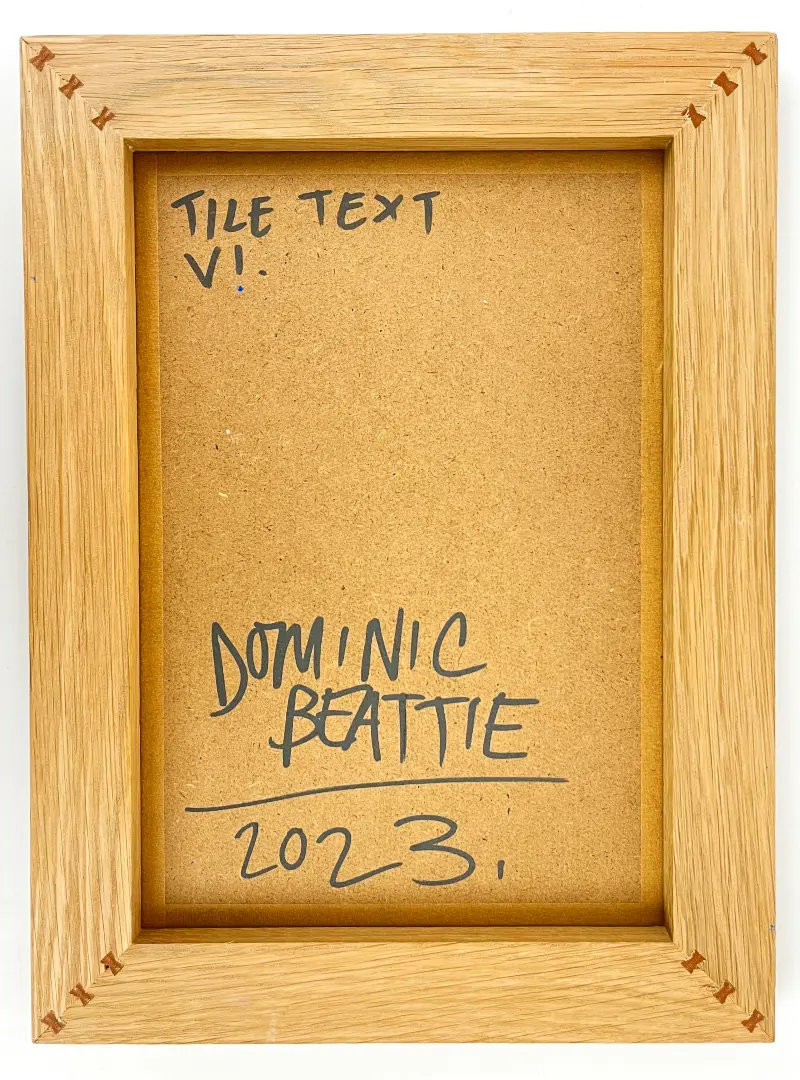 TILE TEXT
VI.
DOMINIC
BEATTIE
2023.